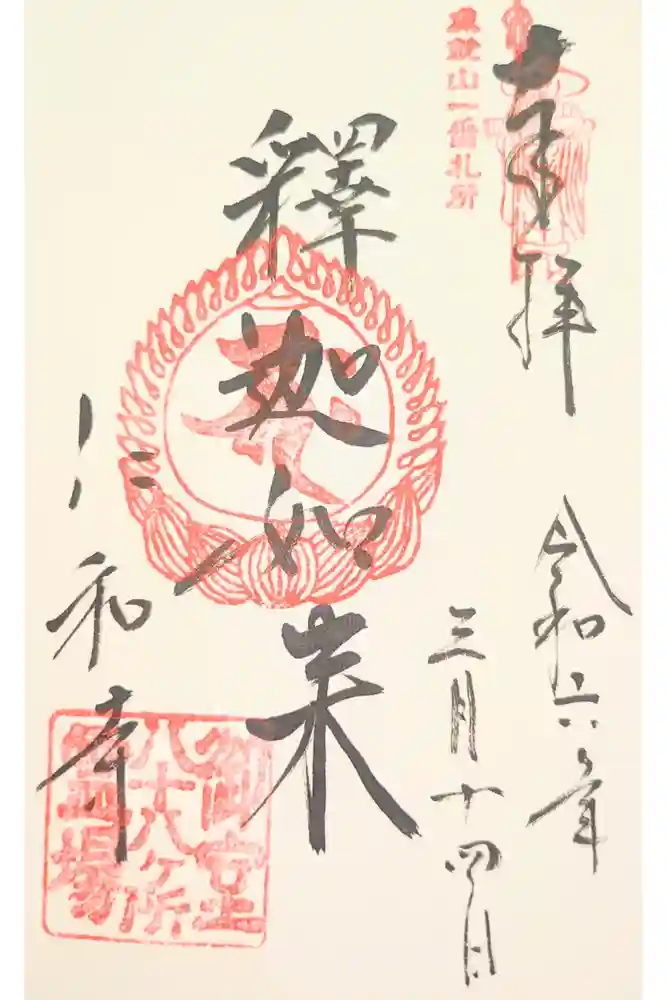 成就山一番札所
奉拝
令和六年
三月十四日
釋迦如来
仁和寺
御室
八十八ヶ所
霊場